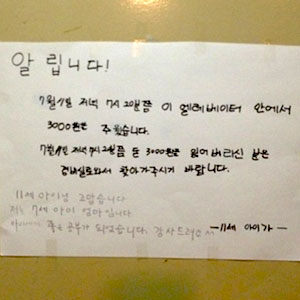 알 립니다!
7월 1일 저녁 7시 20분쯤 이 엘레베이터 안에서
3000원은 주웠습니다.
7월 1일 저녁 7시 20분쯤 돈 3000원은 잃어버리신 분은
경비실로와서 찾아가주시기 바랍니다.
11세 아이가
11세 아이님 고맙습니다
저는 7세 아이 엄마입니다
좋은 공부가 되었습니다. 감사드려요